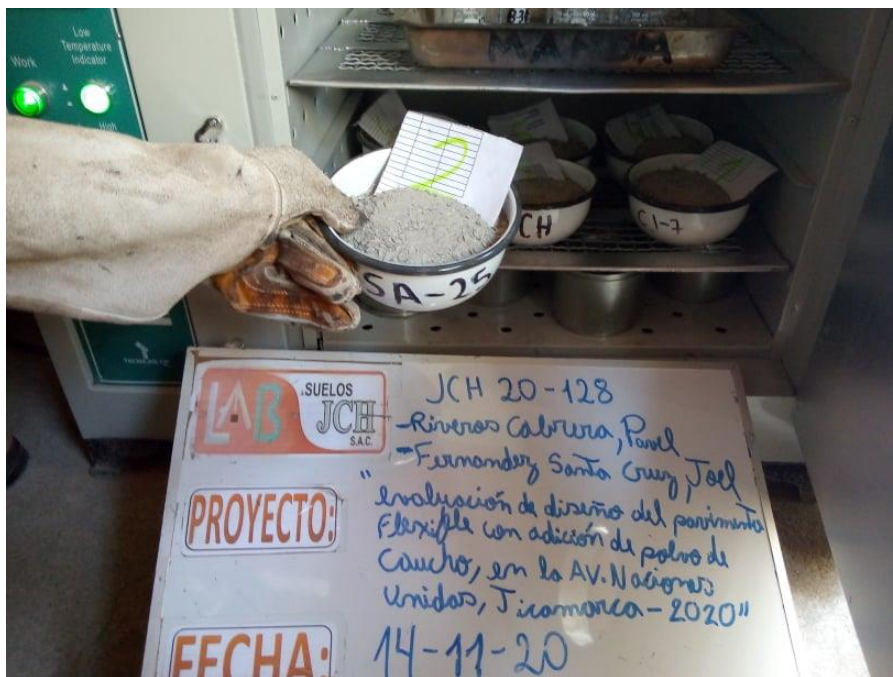 Low
Temperature
Indicator
Work
High
2
SA-25
CH
C1-7
LAB
SUELOS
JCH
S.A.C.
JCH 20-128
-Riveros Cabrera, Pavel
-Fernandez Santa Cruz, Joel
PROYECTO:
"evaluación de diseño del pavimento
Flexible con adición de polvo de
Caucho, en la AV. Naciones
Unidas, Jicamarca - 2020"
FECHA:
14-11-20